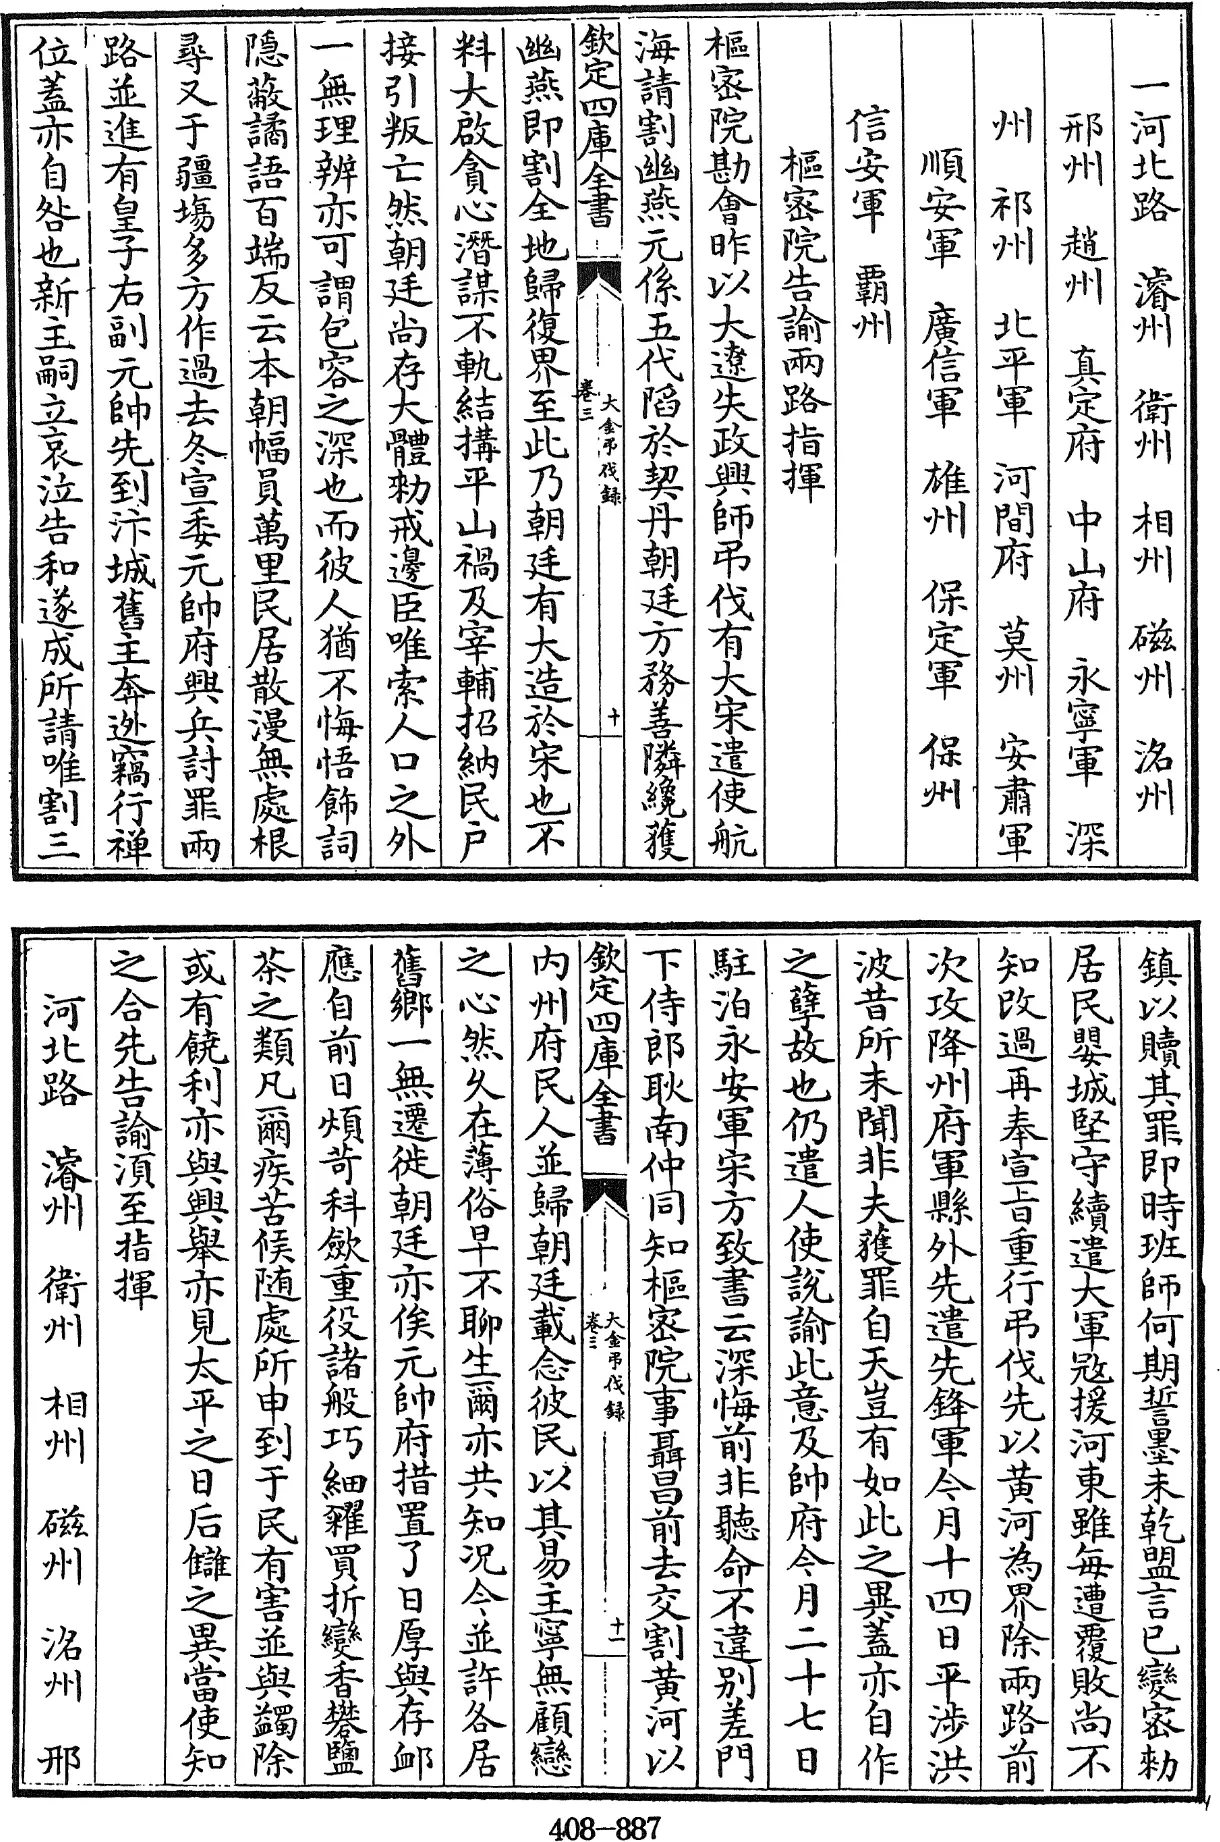 一河北路　濬州　衛州　相州　磁州　洺州
邢州　趙州　真定府　中山府　永寧軍　深
州　祁州　北平軍　河間府　莫州　安肅軍
順安軍　廣信軍　雄州　保定軍　保州
信安軍　霸州
樞密院告諭兩路指揮
樞密院勘會昨以大遼失政興師弔伐有大宋遣使航
海請割幽燕元係五代陷於契丹朝廷方務善隣纔獲
欽定四庫全書
大金弔伐録
卷三
十
幽燕即割全地歸復界至此乃朝廷有大造於宋也不
料大啟貪心潛謀不軌結搆平山禍及宰輔招納民户
接引叛亡然朝廷尚存大體勅戒邊臣唯索人口之外
一無理辨亦可謂包容之深也而彼人猶不悔悟飾詞
隱蔽譎語百端反云本朝幅員萬里民居散漫無處根
尋又于疆場多方作過去冬宣委元帥府興兵討罪兩
路並進有皇子右副元帥先到汴城舊主奔迯竊行禅
位蓋亦自咎也新主嗣立哀泣告和遂成所請唯割三
鎮以贖其罪即時班師何期誓墨未乾盟言已變密勅
居民嬰城堅守續遣大軍㓂援河東雖每遭覆敗尚不
知改過再奉宣旨重行弔伐先以黄河為界除兩路前
次攻降州府軍縣外先遣先鋒軍今月十四日平涉洪
波昔所未聞非夫獲罪自天豈有如此之異蓋亦自作
之孽故也仍遣人使說諭此意及帥府今月二十七日
駐泊永安軍宋方致書云深悔前非聽命不違别差門
下侍郎耿南仲同知樞密院事聶昌前去交割黄河以
欽定四庫全書
大金弔伐録
卷三
十一
内州府民人並歸朝廷載念彼民以其易主寧無顧戀
之心然久在薄俗早不聊生爾亦共知况今並許各居
舊鄉一無遷徙朝廷亦俟元帥府措置了日厚與存䘏
應自前日煩苛科歛重役諸般巧細糴買折變香礬鹽
茶之類凡爾疾苦候随處所申到于民有害並與蠲除
或有饒利亦與興舉亦見太平之日后讎之異當使知
之合先告諭湏至指揮
河北路　濬州　衛州　相州　磁州　洺州　邢
408-887